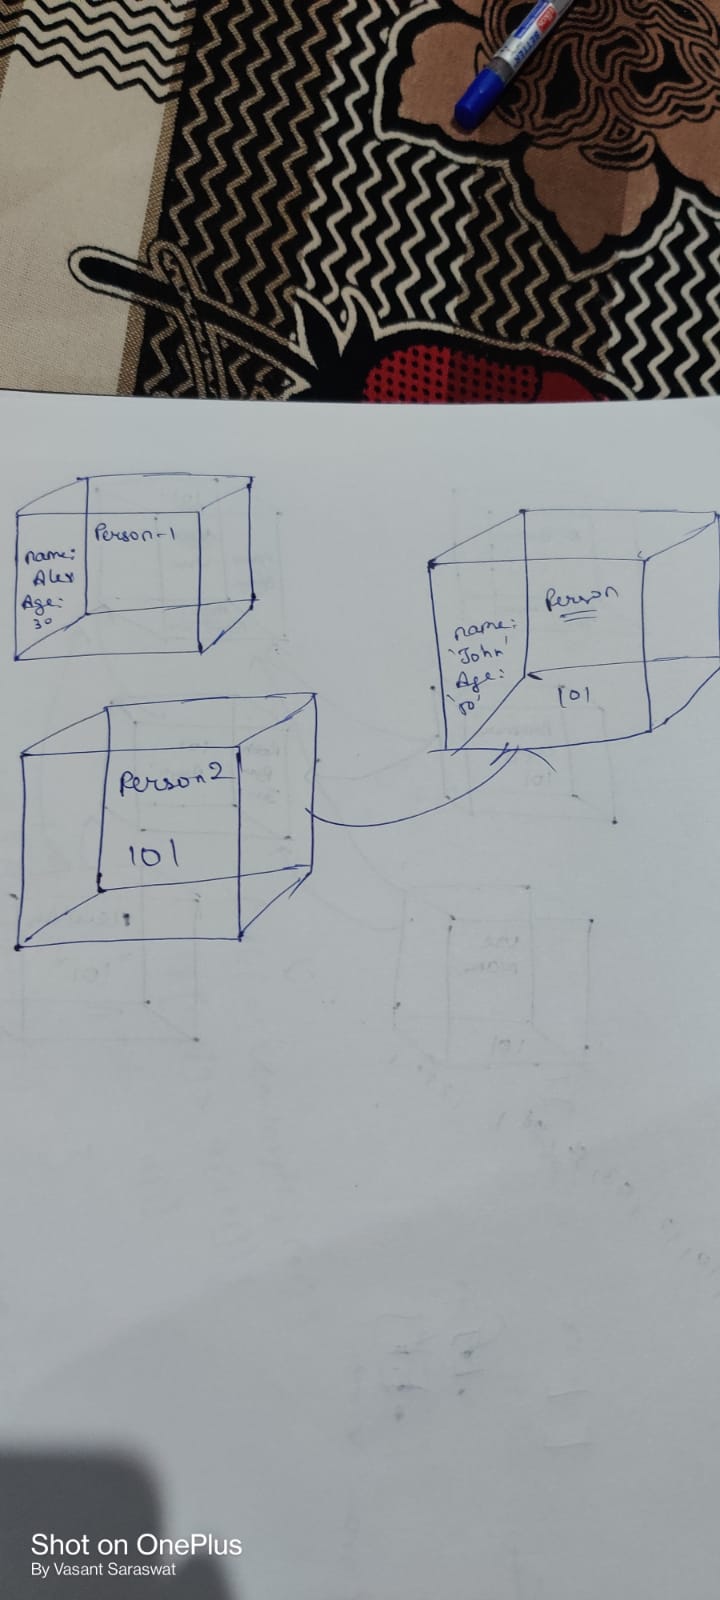 Person-1
name:
Alex
Age:
30
Person
name:
'John'
Age:
'50'
101
Person2
101
Shot on OnePlus
By Vasant Saraswat